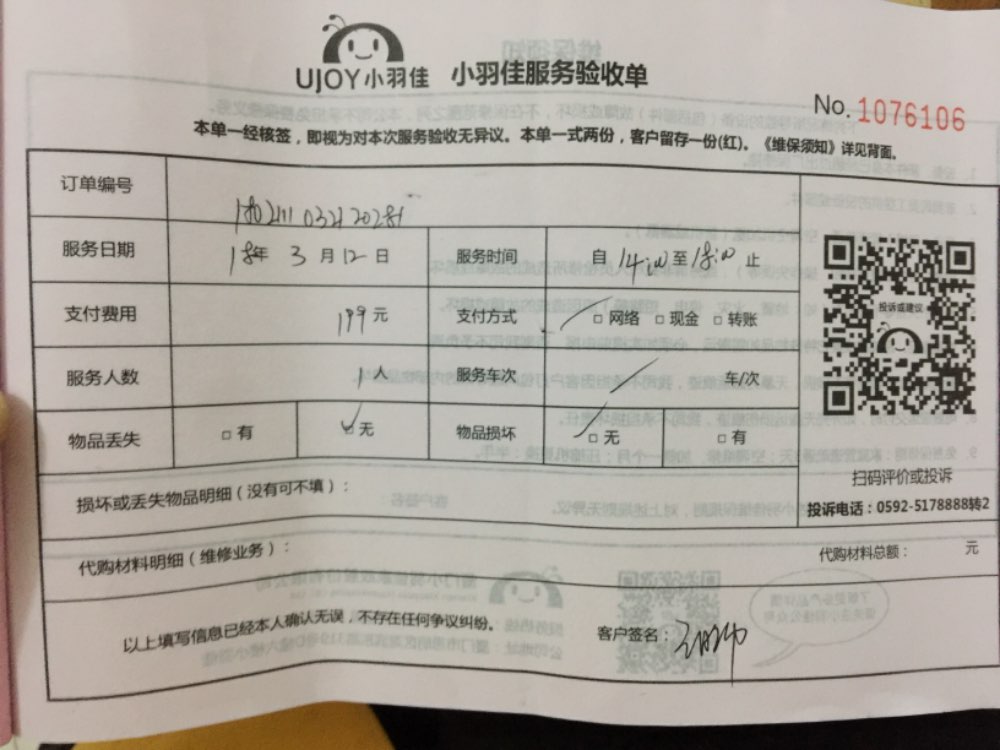 UJOY小羽佳 小羽佳服务验收单
No. 1076106
本单一经核签，即视为对本次服务验收无异议。本单一式两份，客户留存一份(红)。《维保须知》详见背面。
订单编号
服务日期 18年 3月12日 服务时间 自14:00至18:00止
支付费用 199元 支付方式 □网络 □现金 □转账
服务人数 1人 服务车次 车/次
物品丢失 □有 □无 物品损坏 □无 □有
投诉或建议
扫码评价或投诉
投诉电话：0592-5178888转2
损坏或丢失物品明细（没有可不填）：
代购材料明细（维修业务）： 代购材料总额： 元
以上填写信息已经本人确认无误，不存在任何争议纠纷。 客户签名：